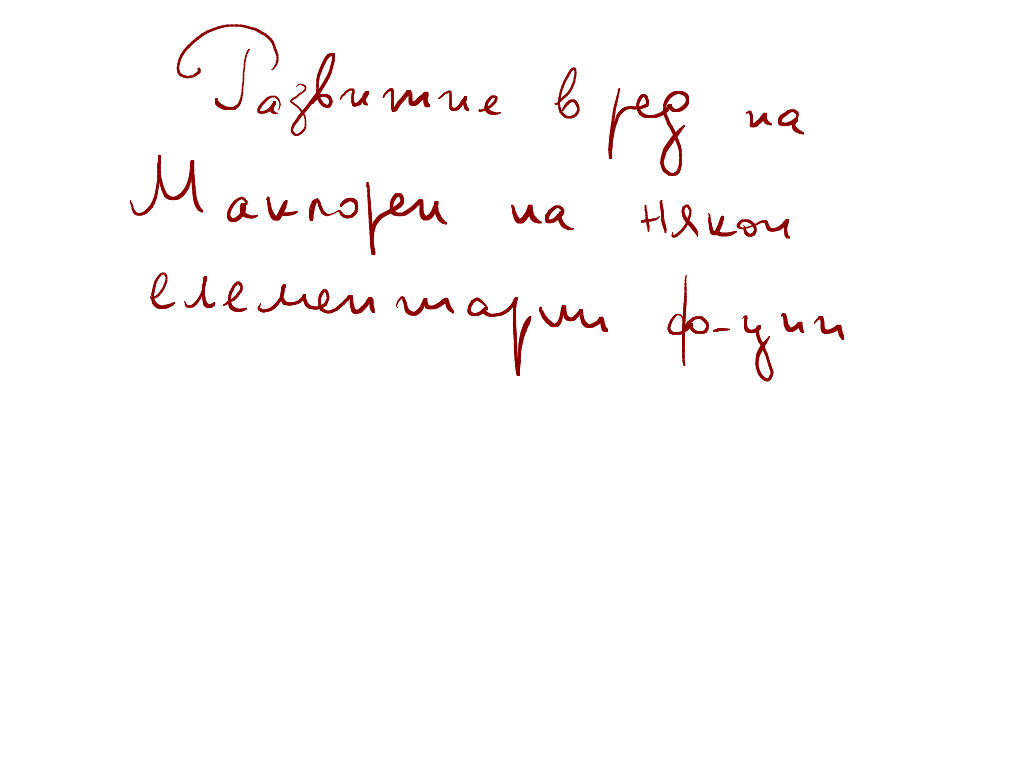 Развитие в ред на
Маклорен на някои
елементарни ф-ции